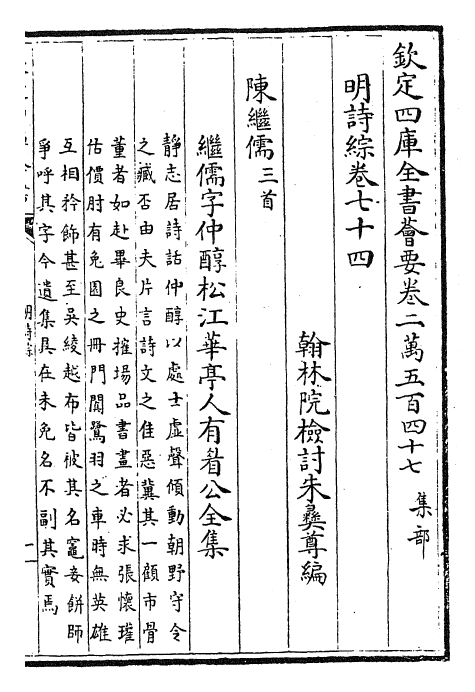 欽定四庫全書薈要卷二萬五百四十七　集部
明詩綜卷七十四
翰林院檢討朱彝尊編
陳繼儒三首
繼儒字仲醇松江華亭人有眉公全集
静志居詩話仲醇以處士虛聲傾動朝野守令
之臧否由夫片言詩文之佳惡冀其一顧市骨
董者如赴畢良史搉場品書畫者必求張懷瓘
估價肘有兔園之冊門闐鷺羽之車時無英雄
互相矜飾甚至吳綾越布皆被其名竈妾餅師
爭呼其字今遺集具在未免名不副其實焉
明詩綜
一